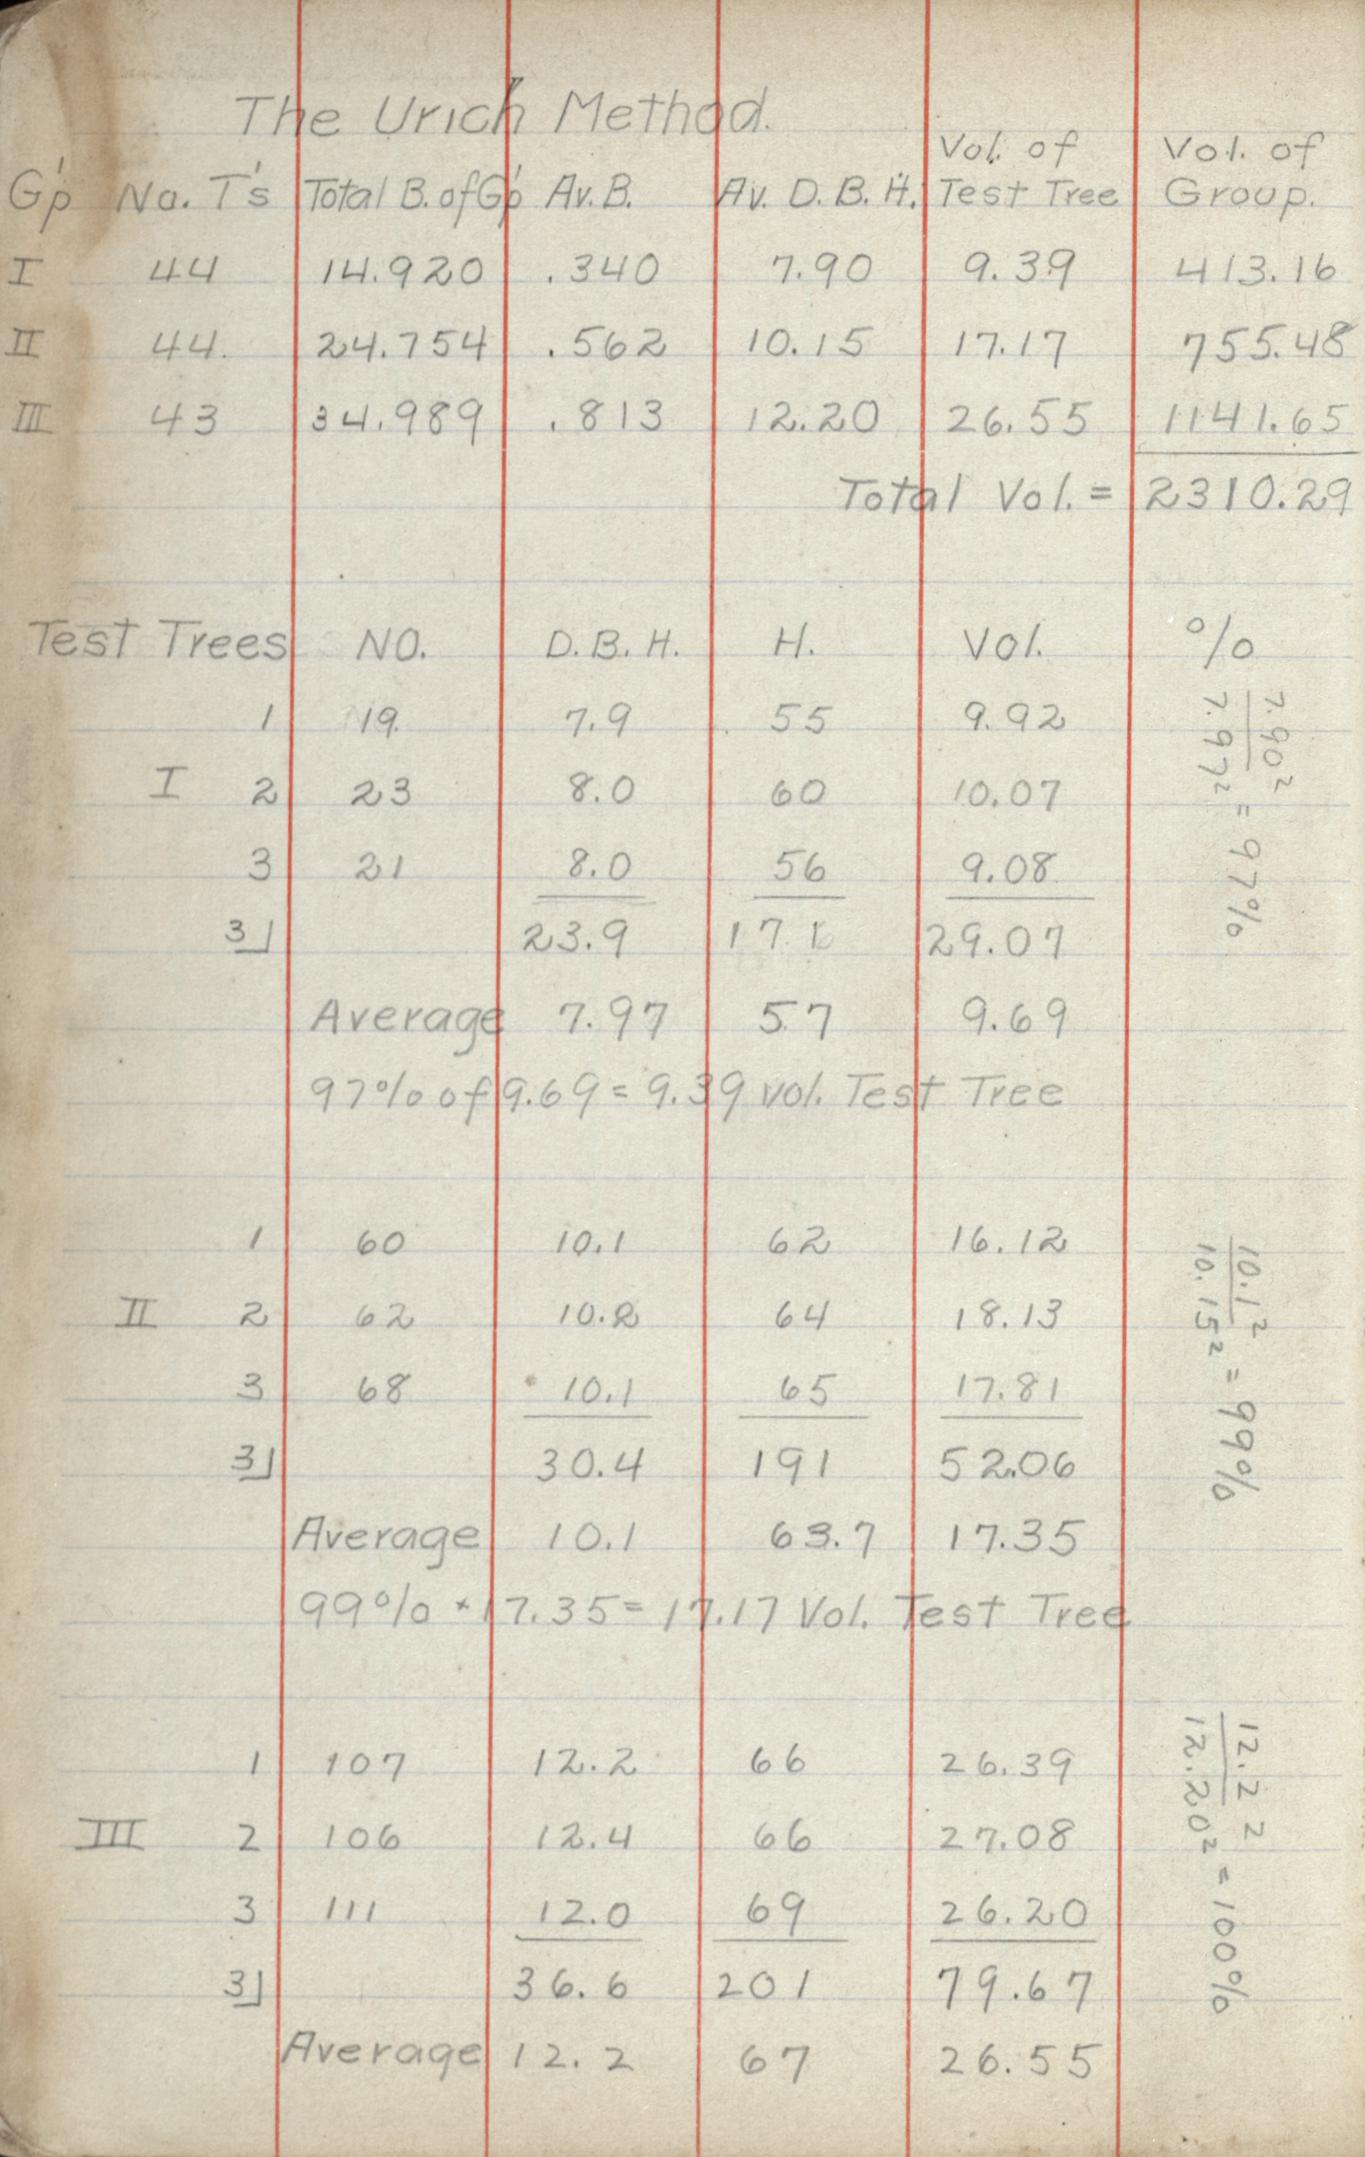 The Urich Method.
G'p No. T's Total B. of G'p Av. B. Av. D. B. H. Vol. of Test Tree Vol. of Group.
I 44 14.920 .340 7.90 9.39 413.16
II 44. 24.754 .562 10.15 17.17 755.48
III 43 34.989 .813 12.20 26.55 1141.65
Total Vol. = 2310.29
Test Trees NO. D. B. H. H. Vol. %
1 19. 7.9 55 9.92
I 2 23 8.0 60 10.07
3 21 8.0 56 9.08
3 23.9 17 29.07
Average 7.97 57 9.69
7.90²
7.97² = 97%
97% of 9.69 = 9.39 vol. Test Tree
1 60 10.1 62 16.12
II 2 62 10.2 64 18.13
3 68 10.1 65 17.81
3 30.4 191 52.06
Average 10.1 63.7 17.35
10.1²
10.15² = 99%
99% * 17.35 = 17.17 Vol. Test Tree
1 107 12.2 66 26.39
III 2 106 12.4 66 27.08
3 111 12.0 69 26.20
3 36.6 201 79.67
Average 12.2 67 26.55
12.2²
12.20² = 100%